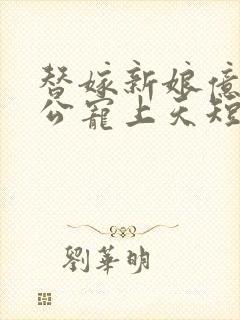 替嫁新娘億
公寵上天短
劉華明